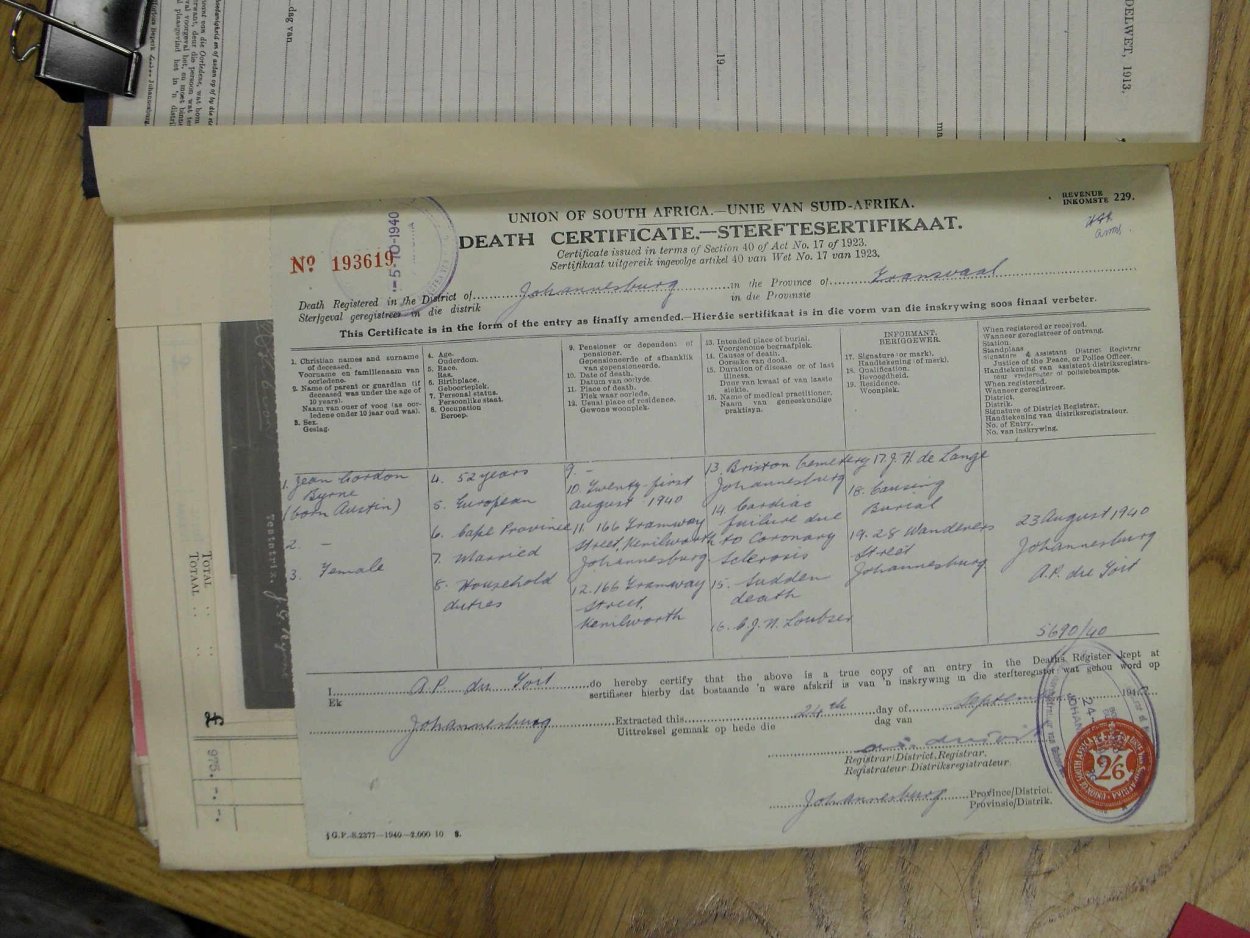 DELWET, 1913.
dag van
19
ma
UNION OF SOUTH AFRICA.—UNIE VAN SUID-AFRIKA.
REVENUE
INKOMSTE 229.
DEATH CERTIFICATE.—STERFTESERTIFIKAAT.
Certificate issued in terms of Section 40 of Act No. 17 of 1923.
Sertifikaat uitgereik ingevolge artikel 40 van Wet No. 17 van 1923.
No 193619
-5-10-1940
Death Registered in the District of Johannesburg in the Province of Transvaal
Sterfgeval geregistreer in die distrik in die Provinsie
This Certificate is in the form of the entry as finally amended.—Hierdie sertifikaat is in die vorm van die inskrywing soos finaal verbeter.
1. Christian names and surname
of deceased.
Voorname en familienaam van
oorledene.
2. Name of parent or guardian (if
deceased was under the age of
10 years).
Naam van ouer of voog (as oor-
ledene onder 10 jaar oud was).
3. Sex.
Geslag.
4. Age.
Ouderdom.
5. Race.
Ras.
6. Birthplace.
Geboorteplek.
7. Personal status.
Persoonlike staat.
8. Occupation
Beroep.
9. Pensioner or dependent of
pensioner.
Gepensioneerde of afhanklik
van gepensioneerde.
10. Date of death.
Datum van oorlyde.
11. Place of death.
Plek waar oorlede.
12. Usual place of residence.
Gewone woonplek.
13. Intended place of burial.
Voorgenome begraafplek.
14. Causes of death.
Oorsake van dood.
15. Duration of disease or of last
illness.
Duur van kwaal of van laaste
siekte.
16. Name of medical practitioner.
Naam van geneeskundige
praktisyn.
INFORMANT.
BERIGGEWER.
17. Signature (or mark).
Handtekening (of merk).
18. Qualification.
Bevoegdheid.
19. Residence.
Woonplek.
When registered or received.
Wanneer geregistreer of ontvang.
Station.
Standplaas
Signature of Assistant District Registrar
Justice of the Peace, or Police Officer.
Handtekening van assistent distriksregistra-
teur, vrederegter of polisiebeampte.
When registered.
Wanneer geregistreer.
District.
Distrik.
Signature of District Registrar.
Handtekening van distriksregistrateur.
No. of Entry.
No. van inskrywing.
1. Jean Gordon
Byrne
(born Austin)
2. -
3. Female
4. 52 years
5. European
6. Cape Province
7. Married
8. Household
duties
9. -
10. Twenty-first
August 1940
11. 166 Tramway
Street, Kenilworth
Johannesburg
12. 166 Tramway
Street,
Kenilworth
13. Brixton Cemetery
Johannesburg
14. Cardiac
failure due
to Coronary
Sclerosis
15. Sudden
death
16. C.J.N. Loubser
17. J.H. de Lange
18. Causing
Burial
19. 28 Wanderers
Street
Johannesburg
23 August 1940
Johannesburg
A.P. du Toit
5690/40
I, A.P. du Toit do hereby certify that the above is a true copy of an entry in the Deaths Register kept at
Ek sertifiseer hierby dat bostaande 'n ware afskrif is van 'n inskrywing in die sterfteregister wat gehou word op
Johannesburg Extracted this 24th day of September 194
Uittreksel gemaak op hede die dag van
Registrar/District Registrar.
Registrateur/Distriksregistrateur.
Johannesburg Province/District.
Provinsie/Distrik.
2/6
G.P.-S.2377—1940—2,000 10 S.
TOTAL
TOTAAL